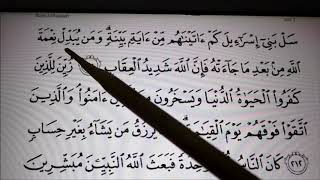 سَلْ بَنِىٓ إِسْرَٰٓءِيلَ كَمْ ءَاتَيْنَٰهُم مِّنْ ءَايَةٍۭ بَيِّنَةٍۗ وَمَن يُبَدِّلْ نِعْمَةَ
ٱللَّهِ مِنۢ بَعْدِ مَا جَآءَتْهُ فَإِنَّ ٱللَّهَ شَدِيدُ ٱلْعِقَابِ زُيِّنَ لِلَّذِينَ
كَفَرُوا۟ ٱلْحَيَوٰةُ ٱلدُّنْيَا وَيَسْخَرُونَ ءَامَنُوا۟ۘ وَٱلَّذِينَ
ٱتَّقَوْا۟ فَوْقَهُمْ يَوْمَ ٱلْقِيَٰمَةِۗ يَرْزُقُ مَن يَشَآءُ بِغَيْرِ حِسَابٍ
٢١٢ كَانَ ٱلنَّاسُ وَٰحِدَةً فَبَعَثَ ٱللَّهُ ٱلنَّبِيِّۦنَ مُبَشِّرِينَ